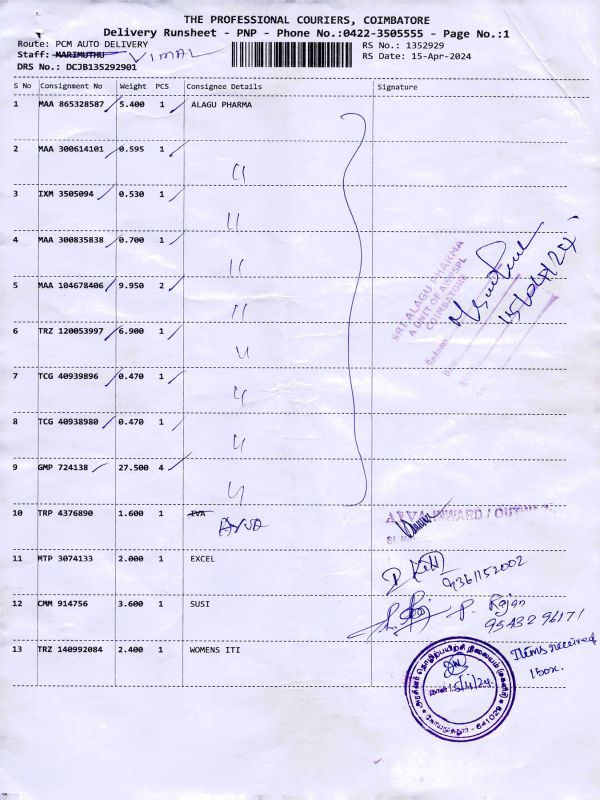 THE PROFESSIONAL COURIERS, COIMBATORE
Delivery Runsheet - PNP - Phone No.:0422-3505555 - Page No.:1
Route: PCM AUTO DELIVERY
RS No.: 1352929
Staff: MARIMUTHU VIMAL
RS Date: 15-Apr-2024
DRS No.: DCJB135292901
S No Consignment No Weight PCS Consignee Details Signature
1 MAA 865328587 5.400 1 ALAGU PHARMA
2 MAA 300614101 0.595 1 "
3 IXM 3505094 0.530 1 "
4 MAA 300835838 0.700 1 "
5 MAA 104678406 9.950 2 "
6 TRZ 120053997 6.900 1 "
7 TCG 40939896 0.470 1 "
8 TCG 40938980 0.470 1 "
9 GMP 724138 27.500 4 "
SRI ALAGU PHARMA
A UNIT OF AWSPL
COIMBATORE
15/04/24
10 TRP 4376890 1.600 1 EVA
INWARD /
11 MTP 3074133 2.000 1 EXCEL
9361152002
12 CMM 914756 3.600 1 SUSI
P. Rajan
9543296171
13 TRZ 140992084 2.400 1 WOMENS ITI
Items received
1 box.
அரசினர் தொழிற்பயிற்சி நிலையம் (மகளிர்)
நாள் 15/4/24
கோயமுத்தூர் - 641029